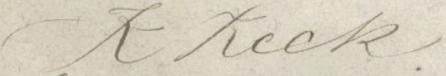 K Keck